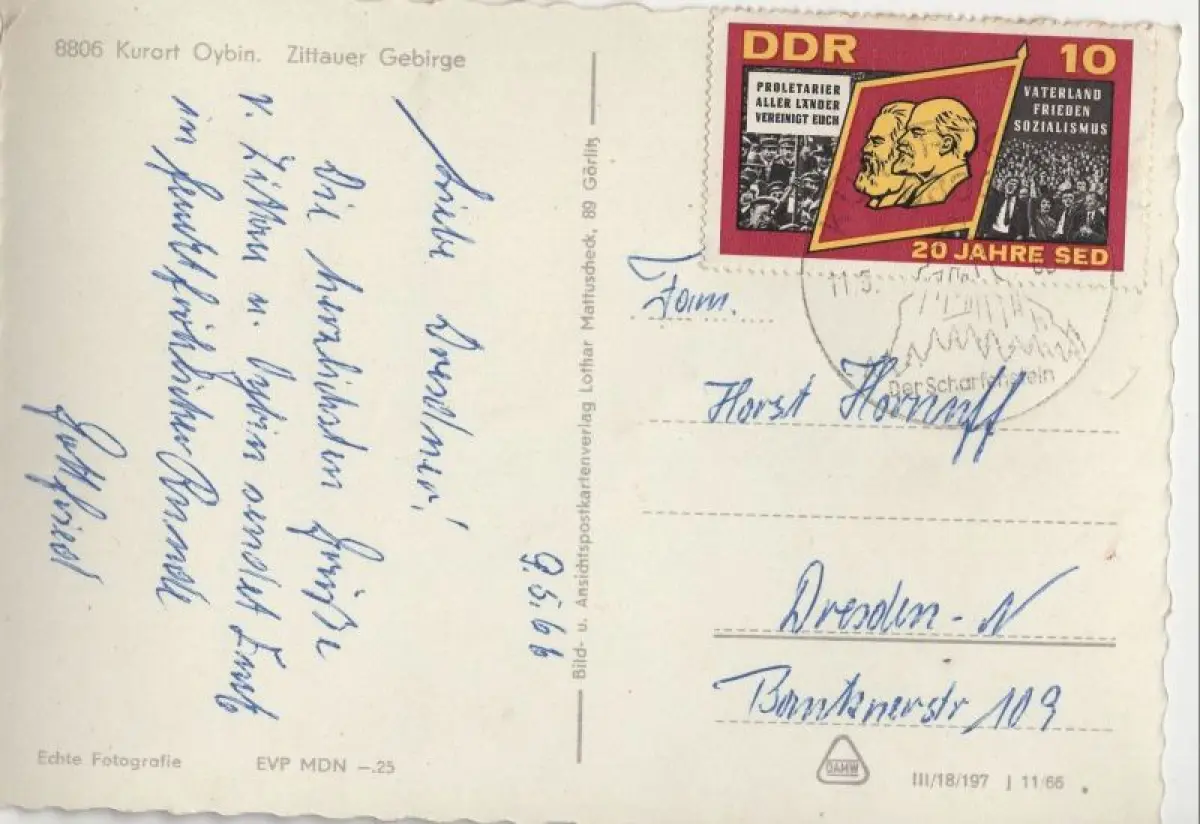 8806 Kurort Oybin. Zittauer Gebirge
9.5.66
Liebe Dresdner!
Die herzlichsten Grüße
v. Zittau u. Oybin sendet Euch
in feuchtfröhlicher Runde
Gottfried
Echte Fotografie
EVP MDN –.25
Bild- u. Ansichtspostkartenverlag Lothar Mattuscheck, 89 Görlitz
DDR 10
PROLETARIER
ALLER LÄNDER
VEREINIGT EUCH
VATERLAND
FRIEDEN
SOZIALISMUS
20 JAHRE SED
11.5.
Der Scharfenstein
Fam.
Horst
Dresden - N
Bautznerstr 109
DAMW
III/18/197 J 11/66